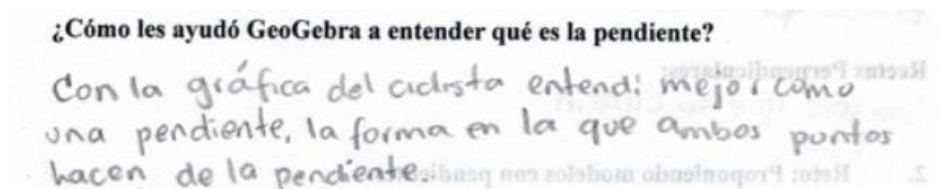 ¿Cómo les ayudó GeoGebra a entender qué es la pendiente?
Con la gráfica del ciclista entendi mejor como
una pendiente, la forma en la que ambos puntos
hacen de la pendiente.